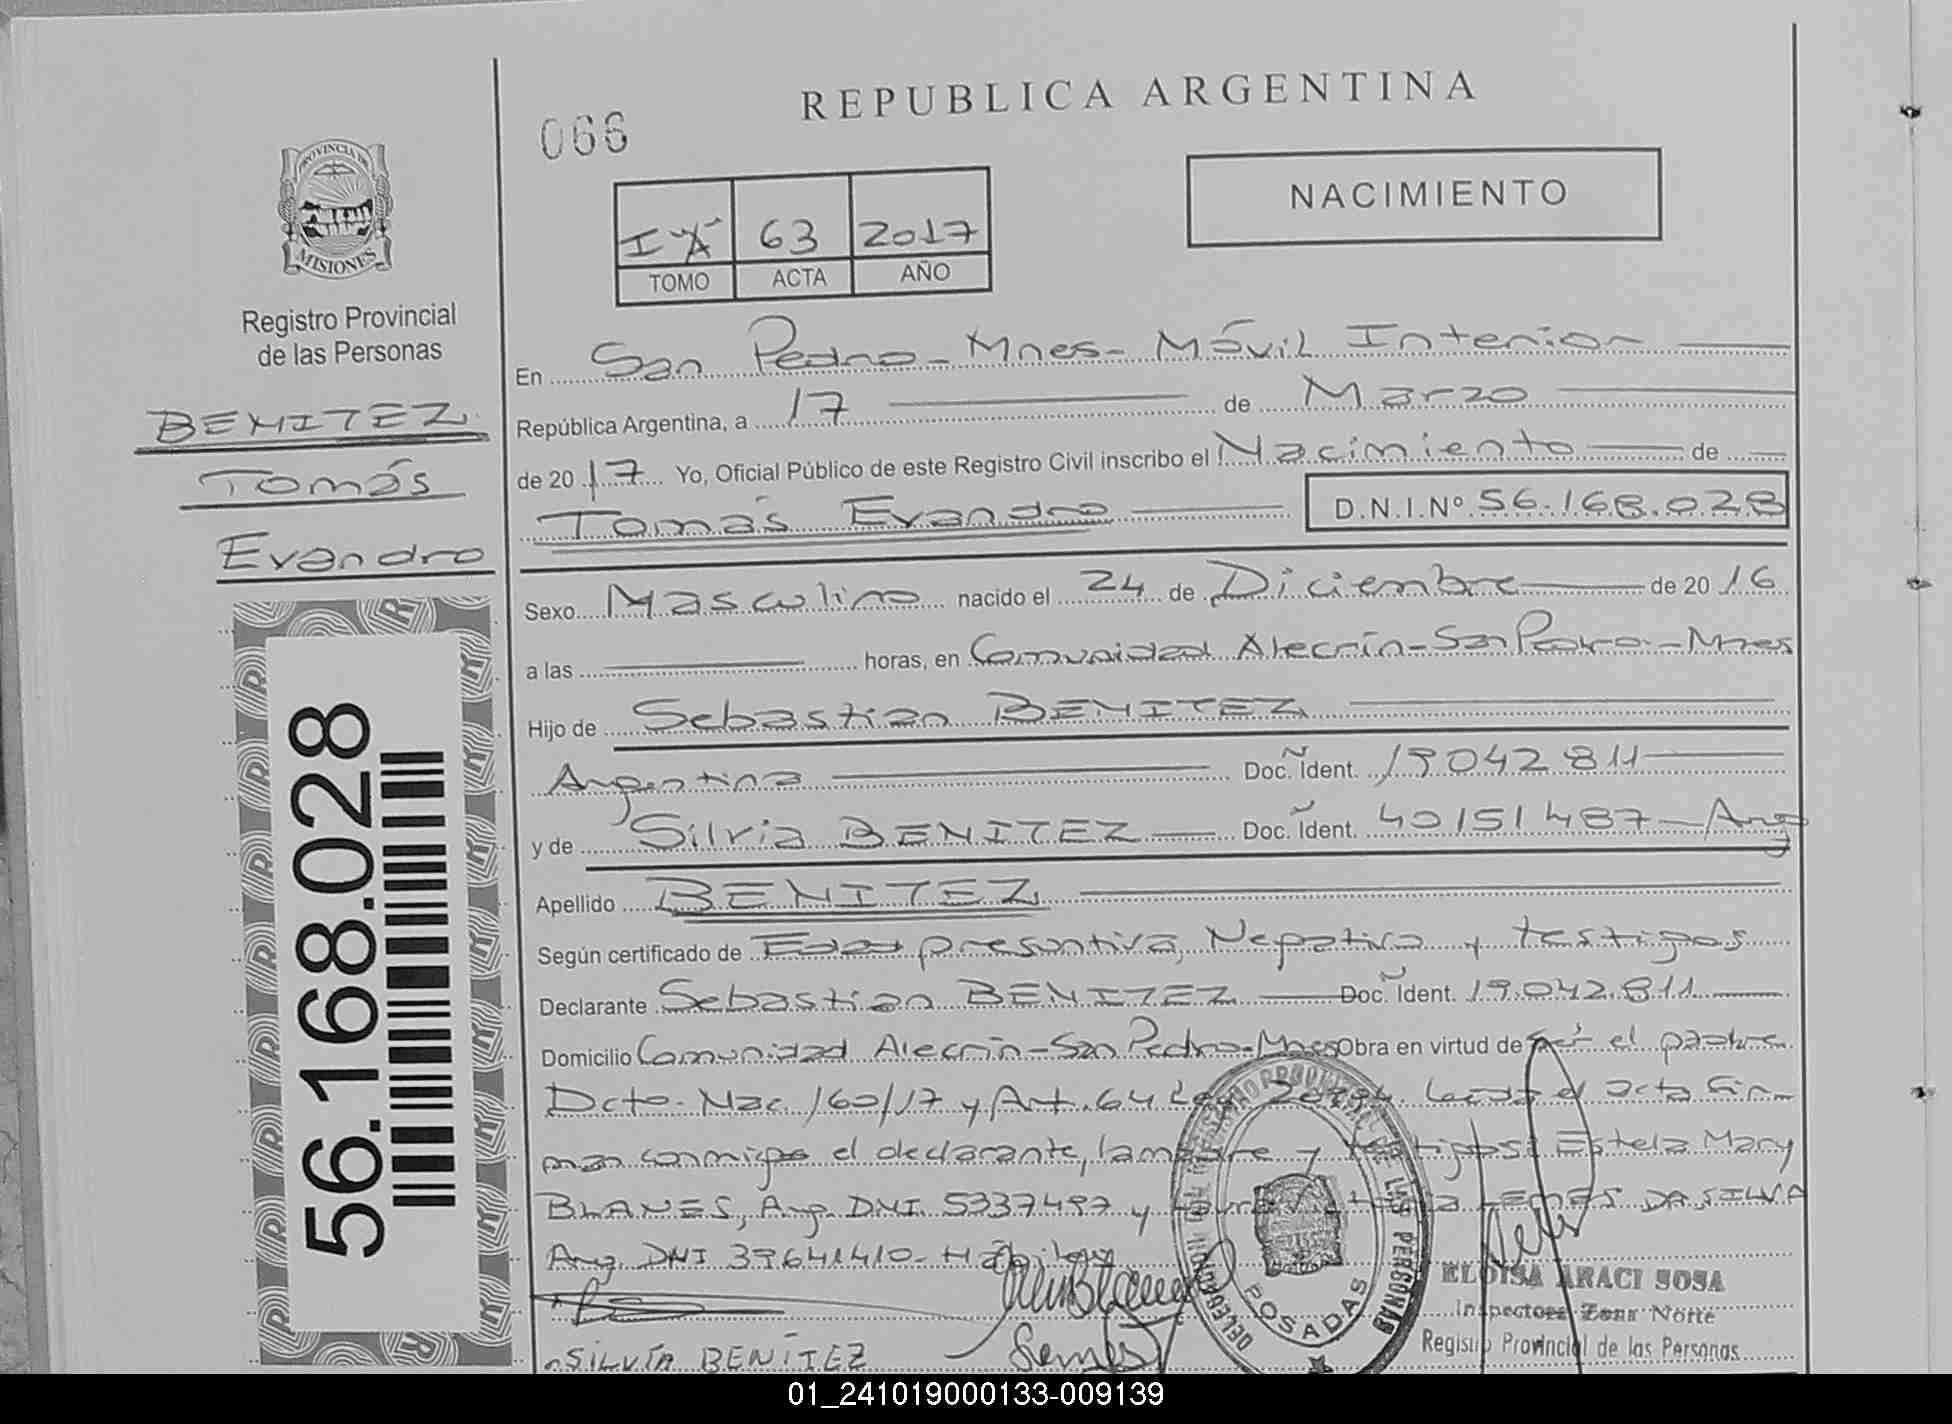 REPUBLICA ARGENTINA
066
NACIMIENTO
PROVINCIA DE
MISIONES
Registro Provincial
de las Personas
BENITEZ
Tomás
Evandro
56.168.028
63 2017
TOMO ACTA AÑO
En San Pedro - Mnes - Móvil Interior
República Argentina, a 17 de Marzo
de 2017 Yo, Oficial Público de este Registro Civil inscribo el Nacimiento de
Tomás Evandro D.N.I.Nº 56.168.028
Sexo Masculino nacido el 24 de Diciembre de 2016
a las horas, en Comunidad Alecrín - San Pedro - Mnes
Hijo de Sebastian BENITEZ
Argentina Doc. Ident. 19042811
y de Silvia BENITEZ Doc. Ident. 40151487 - Arg
Apellido BENITEZ
Según certificado de Edad presuntiva, Negativa y testigos
Declarante Sebastian BENITEZ Doc. Ident. 19.042.811
Domicilio Comunidad Alecrín - San Pedro - Mnes Obra en virtud de ser el padre
Dcto. Nac. 160/17 y Art. 64 Ley Leída el acta fir-
man conmigo el declarante, la madre y testigos: Estela Mary
BLANES, Arg. DNI 5337497 y LEMES DA SILVA
Arg. DNI 39641410 -
SILVIA BENITEZ
POSADAS
ELOISA ARACI SOSA
Inspectora Zona Norte
Registro Provincial de las Personas
01_241019000133-009139